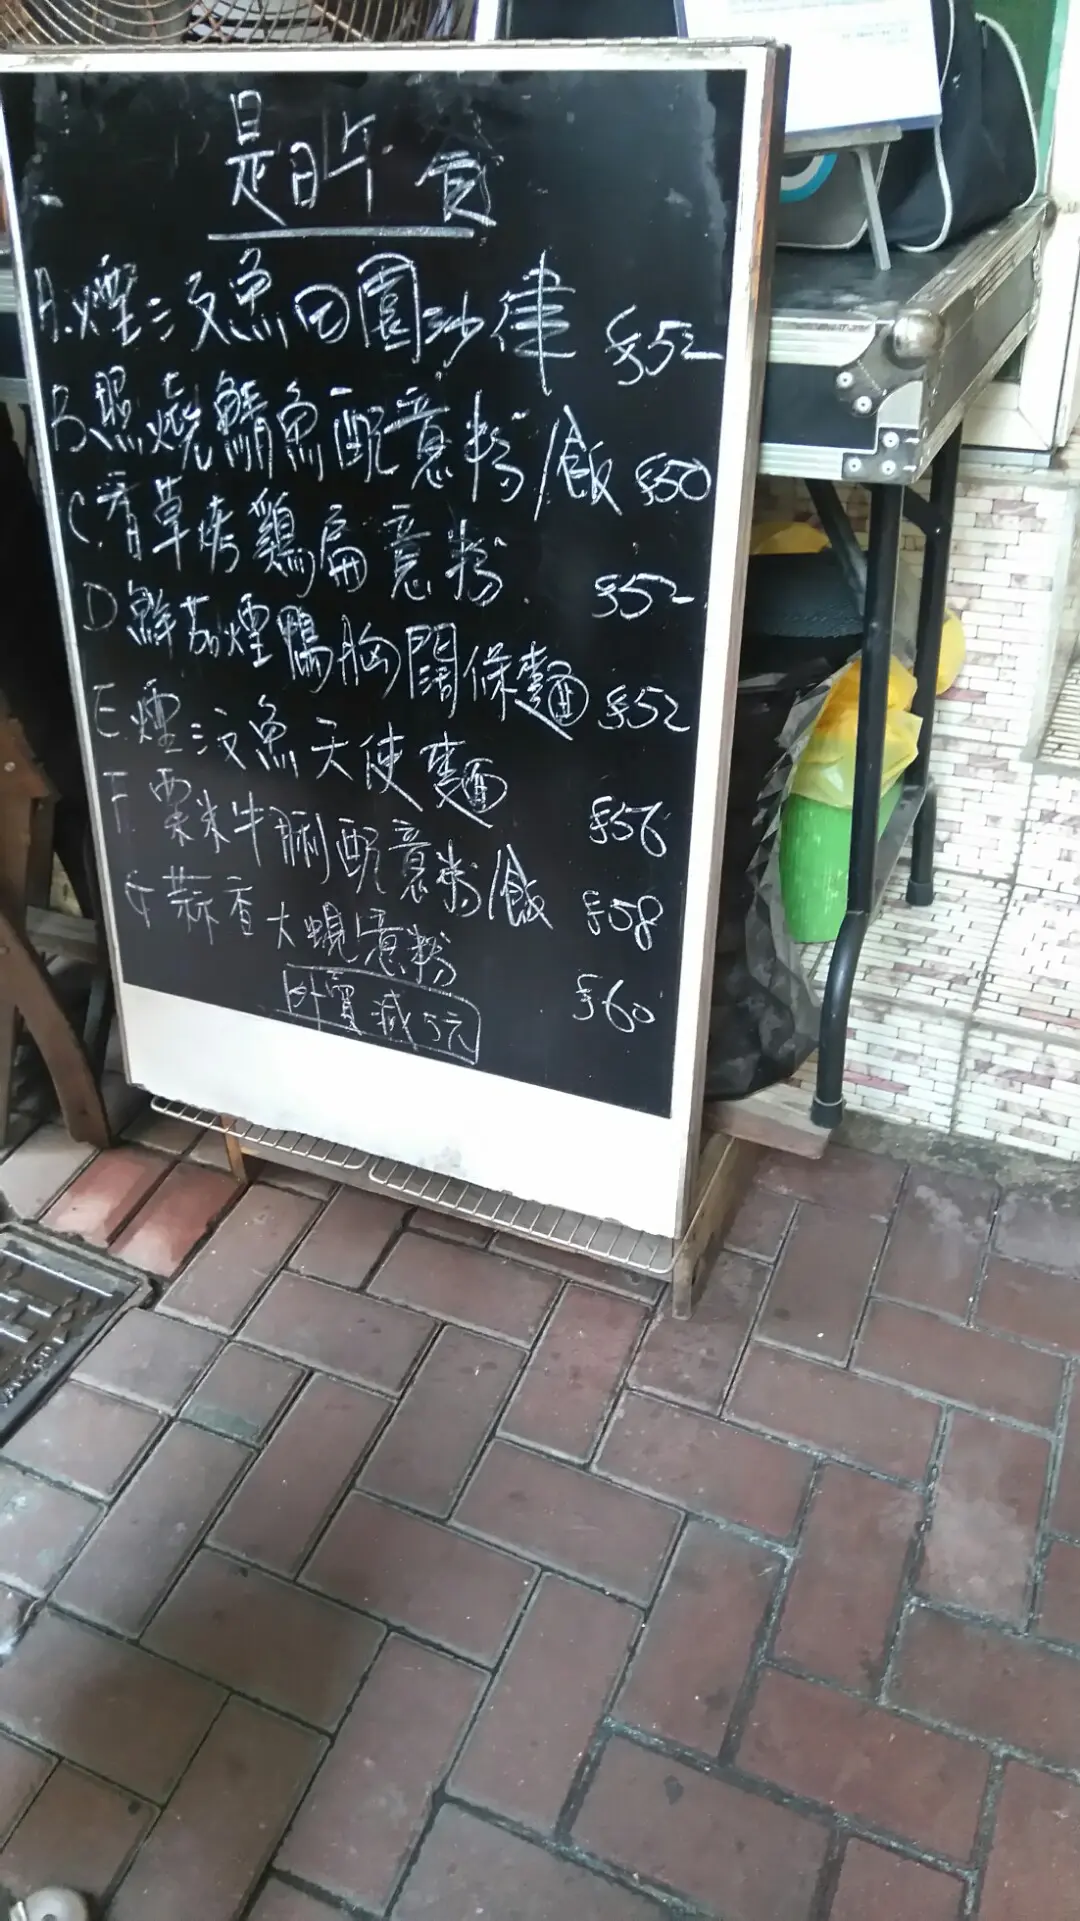 是日午食
A.煙三文魚田園沙律 $52
B.照燒鯖魚配意粉/飯 $50
C.香草烤鷄扁意粉 $52
D鮮茄煙鴨胸闊條麵 $52
E.煙三文魚天使麵 $56
F.粟米牛脷配意粉/飯 $58
G蒜香大蜆意粉 $60
外賣減5元